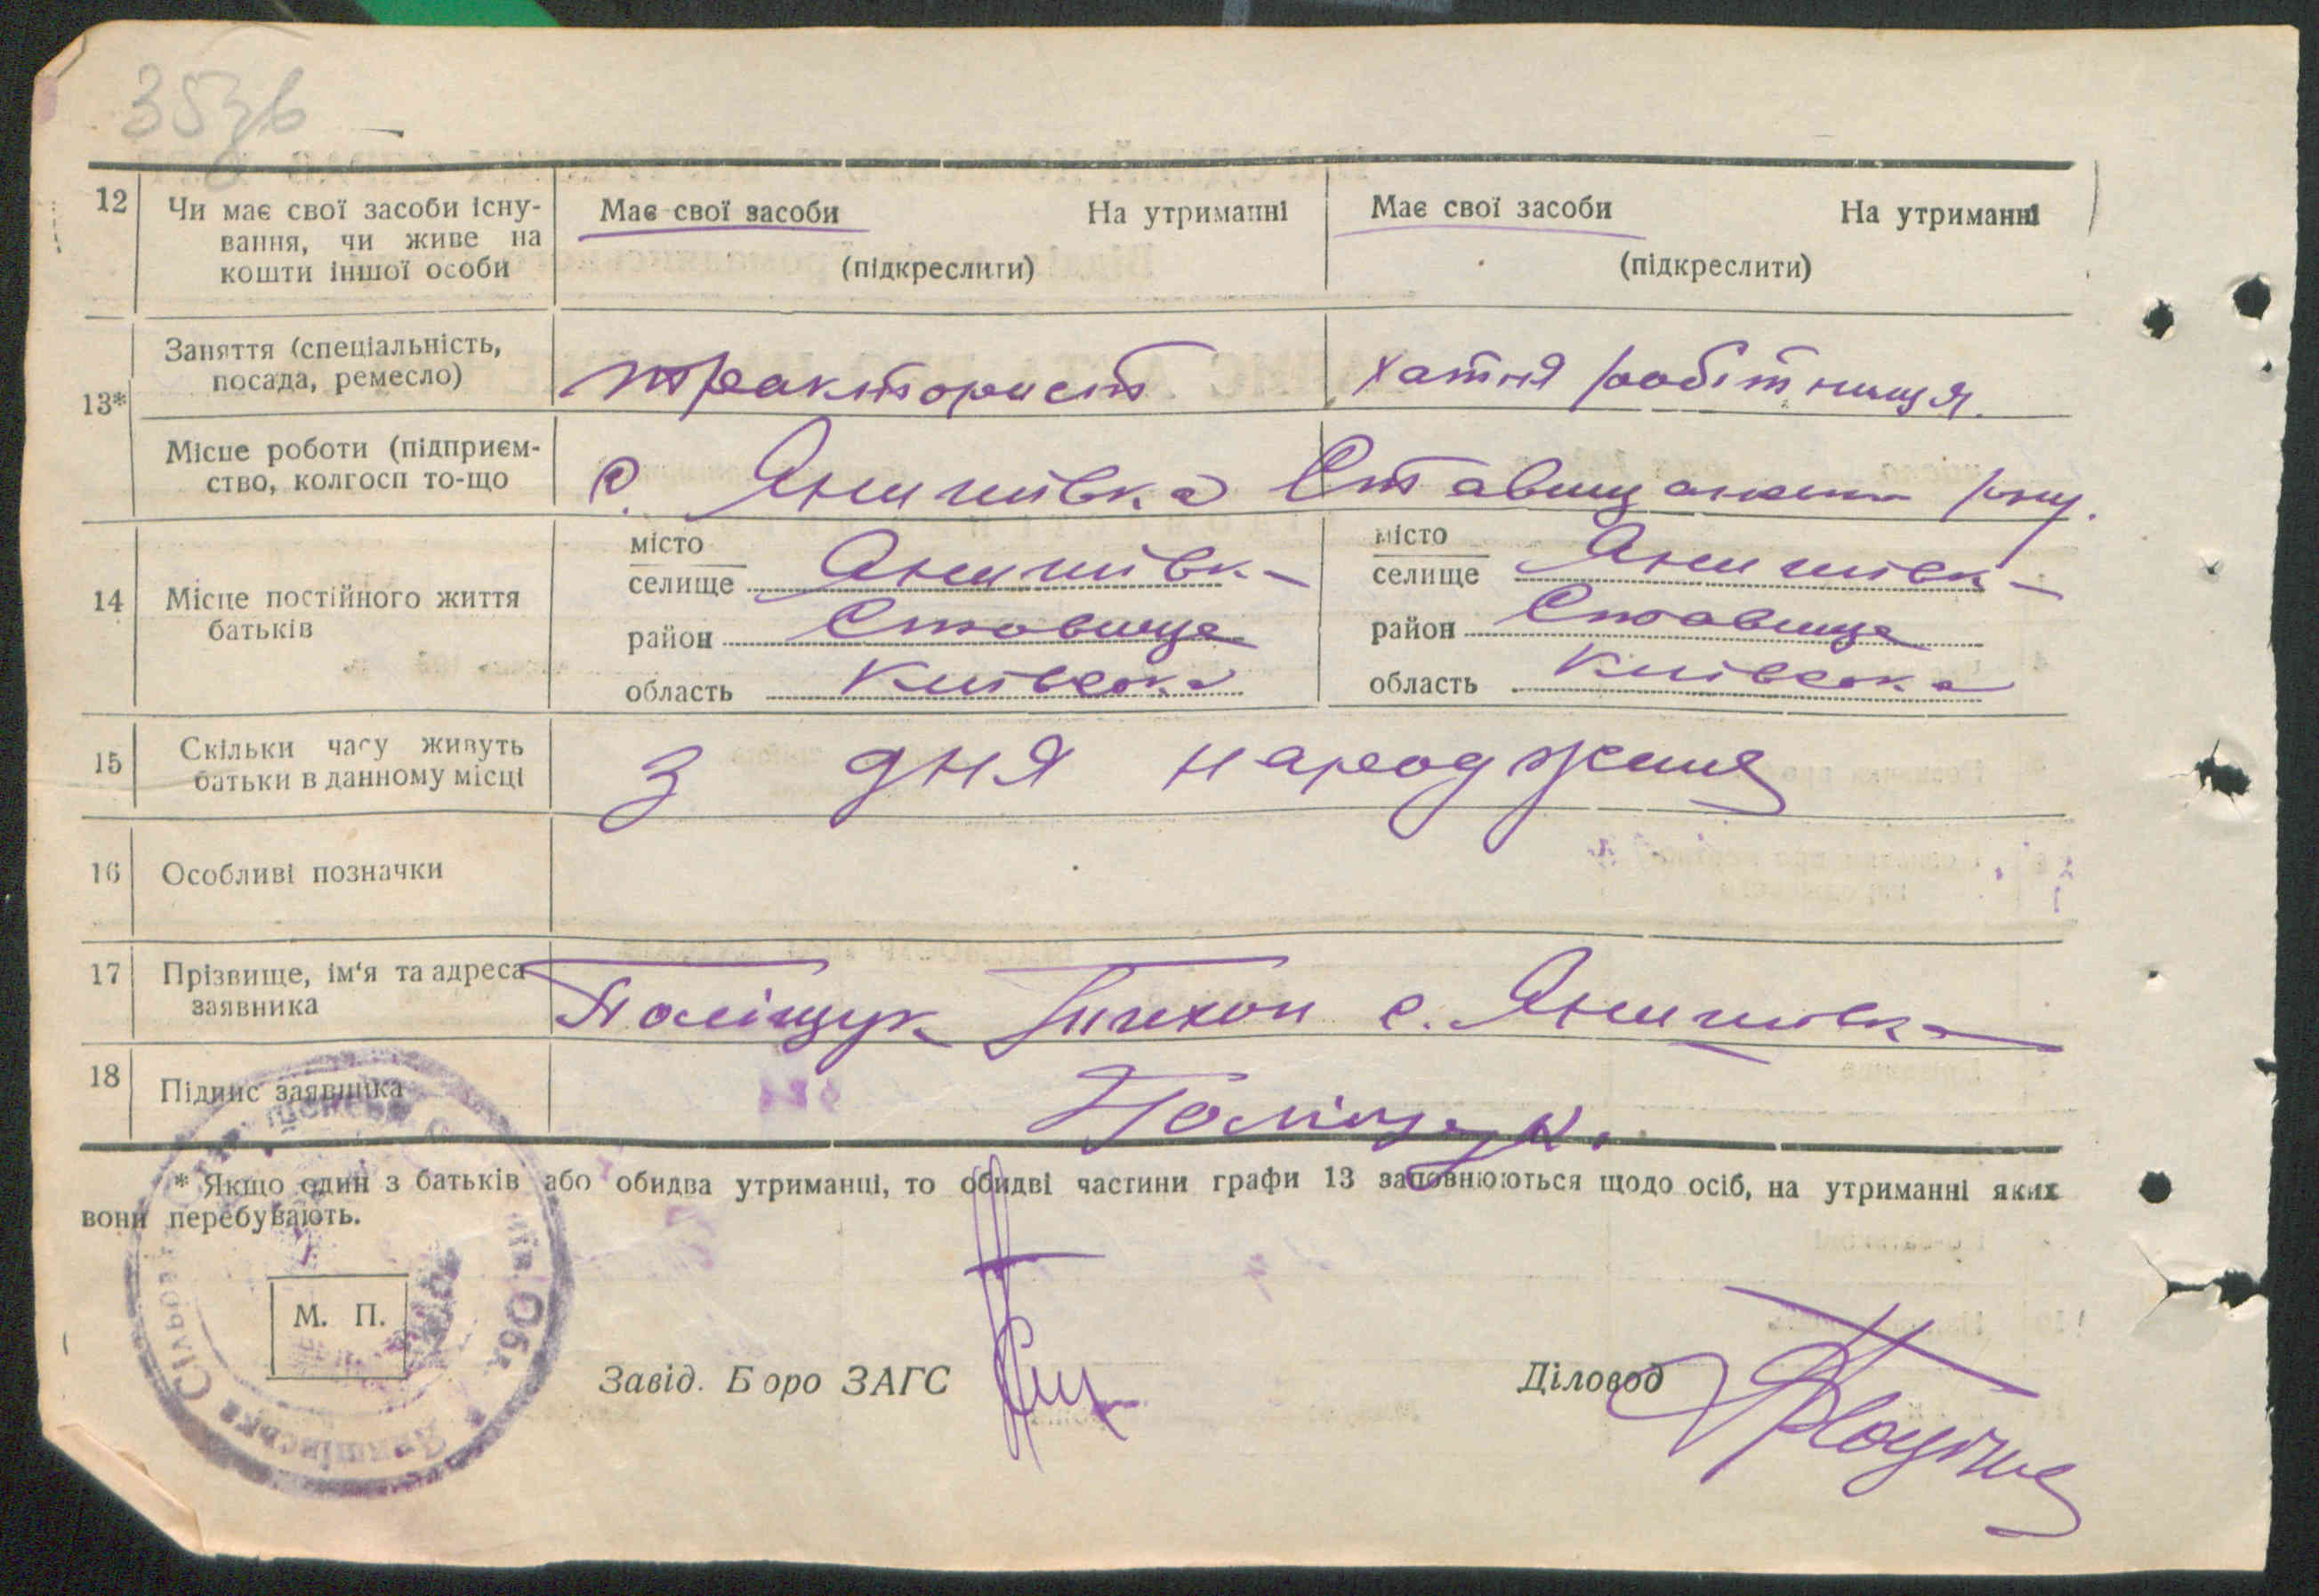 3576
12 Чи має свої засоби існу-
вання, чи живе на
кошти іншої особи
Має свої засоби На утриманні
(підкреслити)
Має свої засоби На утриманні
(підкреслити)
13*
Заняття (спеціальність,
посада, ремесло)
тракторист
хатня робітниця
Місце роботи (підприєм-
ство, колгосп то-що
с. Янишівка Ставищанськ р-ну.
14 Місце постійного життя
батьків
місто
селище Янишівка
район Ставище
область Київська
місто
селище Янишівка
район Ставище
область Київська
15 Скільки часу живуть
батьки в данному місці
З дня народження
16 Особливі позначки
17 Прізвище, ім'я та адреса
заявника
Поліщук Тихон с. Янишівка
18 Підпис заявника
Поліщук.
* Якщо один з батьків або обидва утриманці, то обидві частини графи 13 заповнюються щодо осіб, на утриманні яких
вони перебувають.
М. П.
Завід. Б оро ЗАГС
Діловод